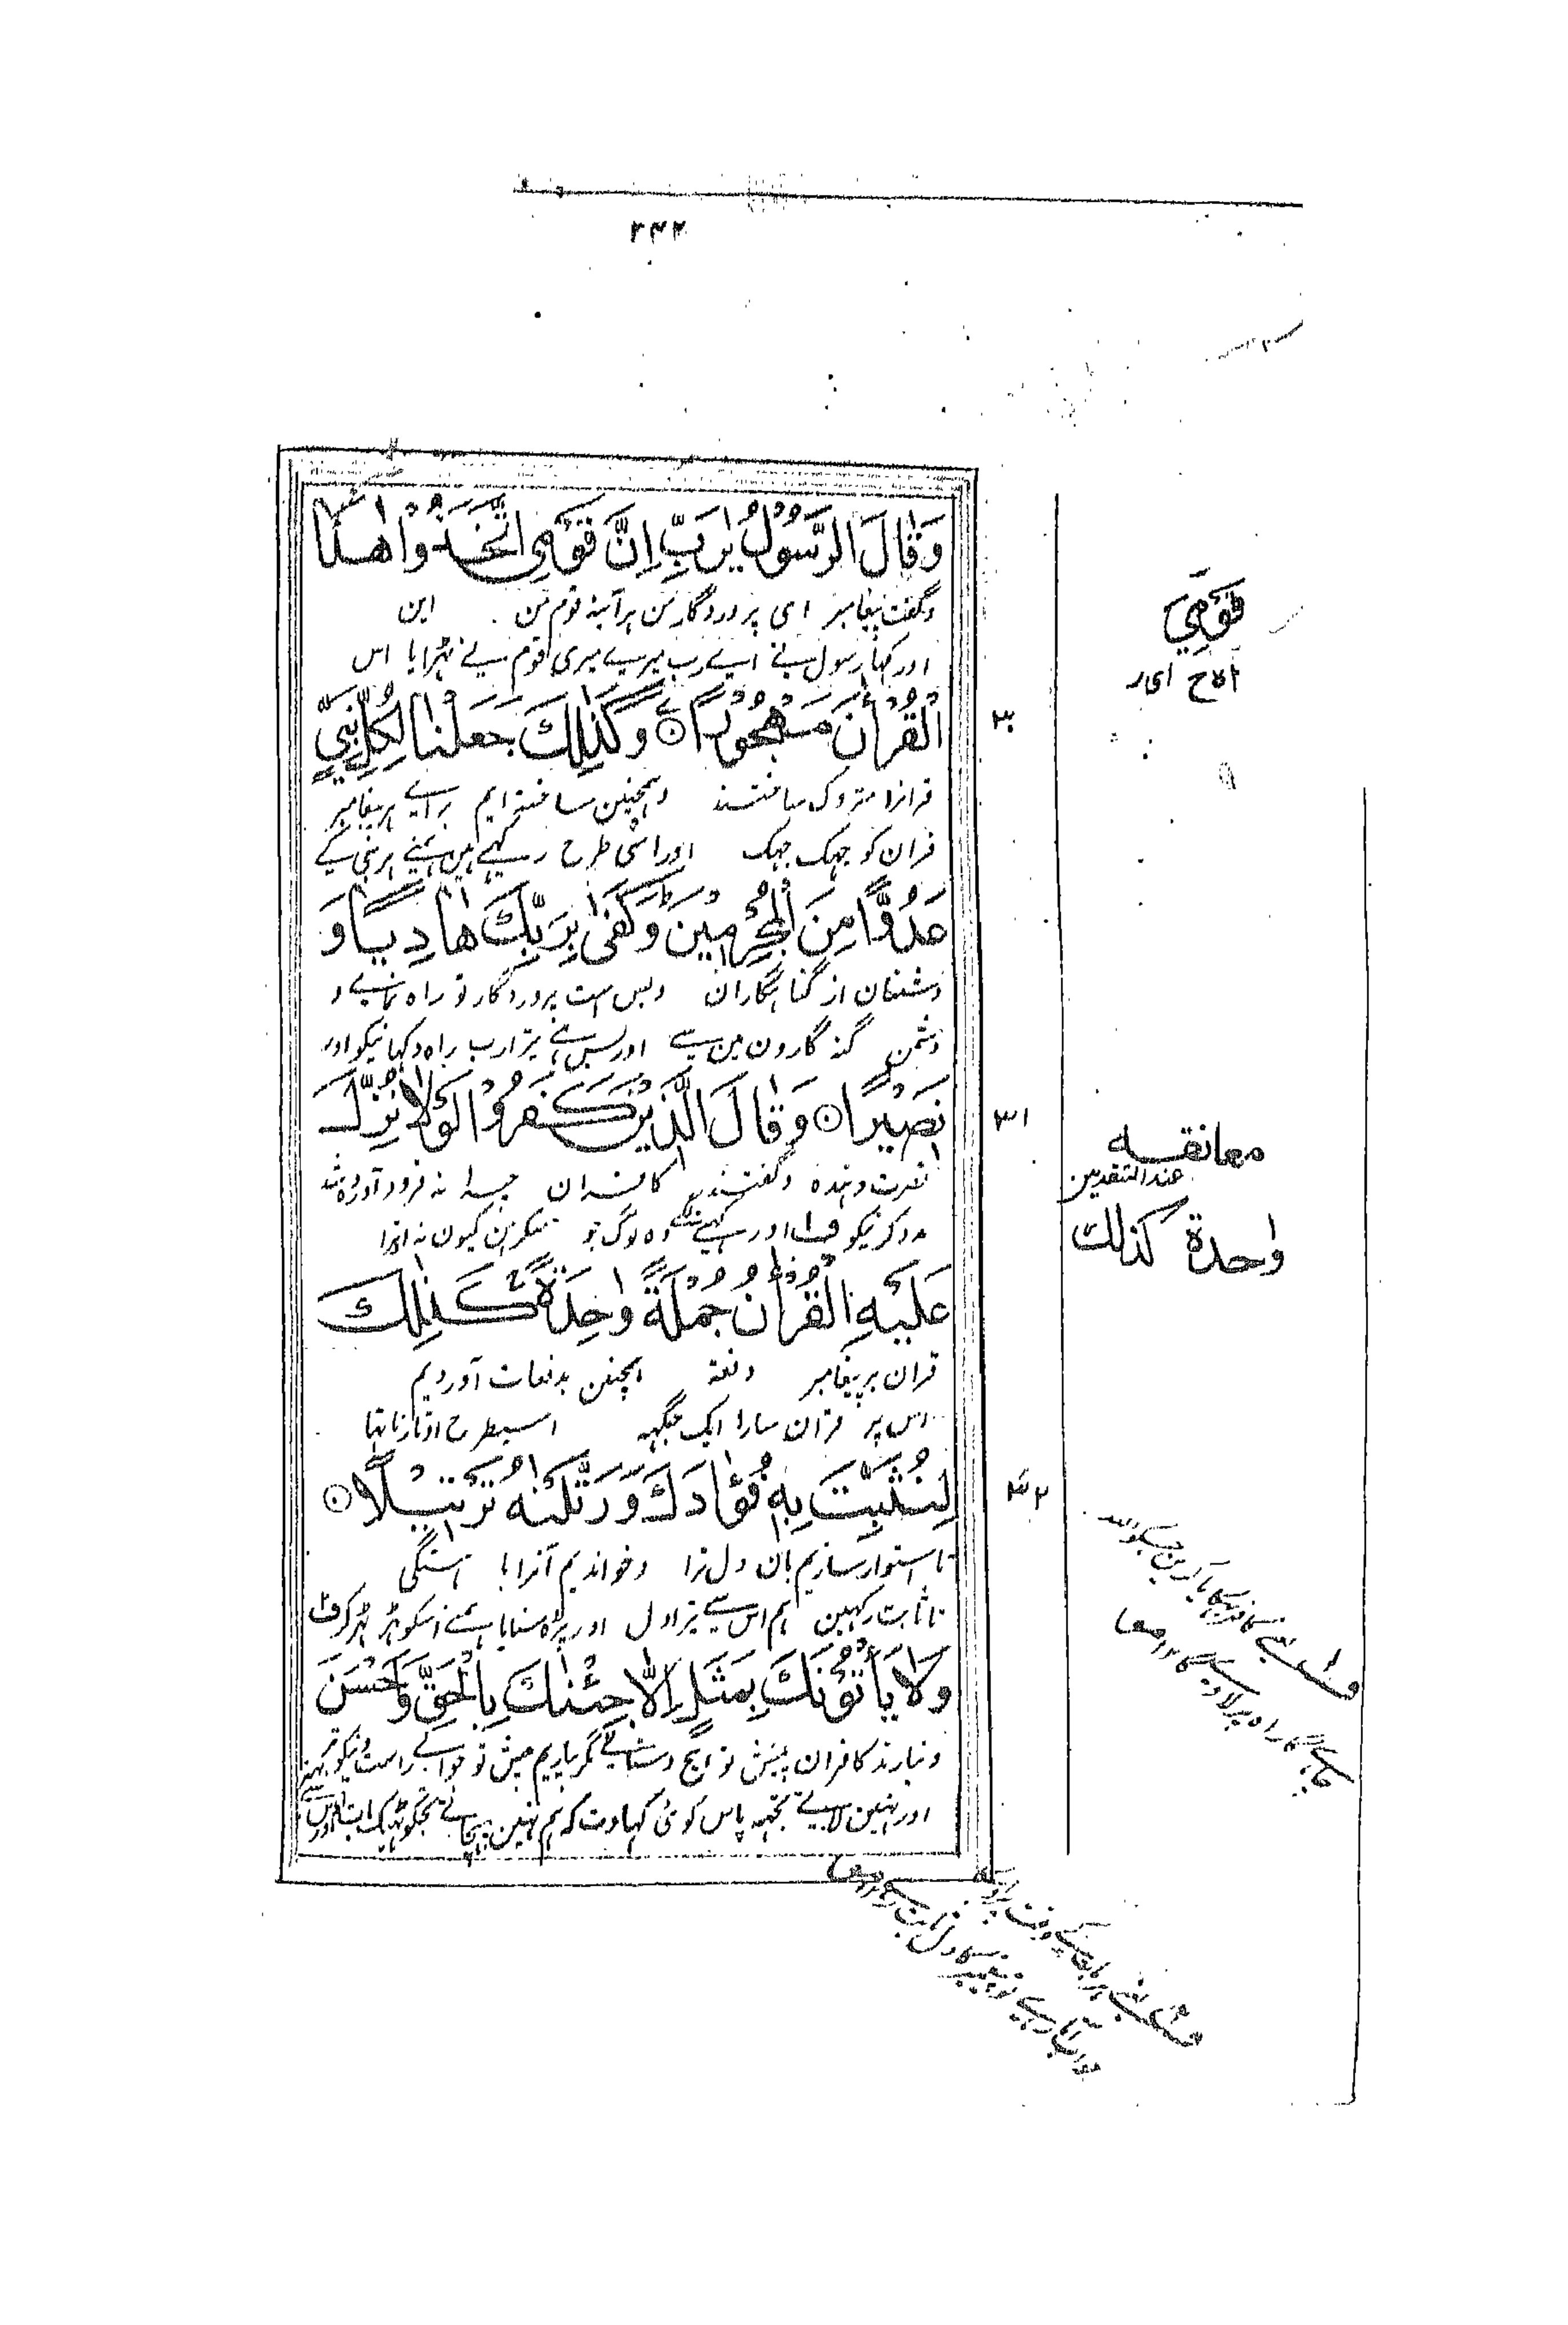 ۲۴۲
وَقَالَ الرَّسُوْلُ يٰرَبِّ اِنَّ قَوْمِى اتَّخَذُوْا هٰذَا
وگفت پیغامبر ای پروردگار من هرآئینه قوم من این
اور کہا رسول نے اے رب میرے میری قوم نے ٹہرایا اس
الْقُرْاٰنَ مَهْجُوْرًا ۝ وَكَذٰلِكَ جَعَلْنَا لِكُلِّ نَبِيٍّ
قرانرا متروک ساختند وهمچنین ساخته ایم براے هر پیغامبر
قران کو جہک جہک اور اسی طرح رکہے ہین ہمنے ہر نبی کے
عَدُوًّا مِنَ الْمُجْرِمِيْنَ وَكَفٰى بِرَبِّكَ هَادِيًا وَ
دشمنان از گناهگاران وبس است پروردگار تو راه نماے و
دشمن گنہ گارون مین سے اور بس ہے تیرا رب راه دکہانیکو اور
نَصِيْرًا ۝ وَقَالَ الَّذِيْنَ كَفَرُوْا لَوْلَا نُزِّلَ
نصرت دهنده وگفتند کافران چرا نه فرود آورده شد
مدد کرنیکو ف۱ اور کہنے لگے وه لوگ جو منکر ہین کیون نہ اترا
عَلَيْهِ الْقُرْاٰنُ جُمْلَةً وَاحِدَةً كَذٰلِكَ
قران بر پیغامبر دفعة همچنین بدفعات آوردیم
اس پر قرآن سارا ایک جگہہ اسیطرح اوتارنا تہا
لِنُثَبِّتَ بِهٖ فُؤَادَكَ وَرَتَّلْنٰهُ تَرْتِيْلًا ۝
تا استوار سازیم بان دل ترا وخواندیم آنرا با هستگی
تا ثابت رکہین ہم اس سے تیرا دل اور پڑه سنایا ہمنے اسکو ٹہر ٹہر کر ف۲
وَلَا يَأْتُوْنَكَ بِمَثَلٍ اِلَّا جِئْنٰكَ بِالْحَقِّ وَاَحْسَنَ
ونیارند کافران پیش تو هیچ داستانے مگر بیاریم پیش تو جواب راست ونیکوتر
اور نہین لاتے تجہہ پاس کوئی کہاوت کہ ہم نہین پہنچاتے تجکو ٹہیک بات اور اس سے
قَوْمِيَ
۳۰
۳۱
معانقه
عند المتقدمین
واحدة كذلك
۳۲